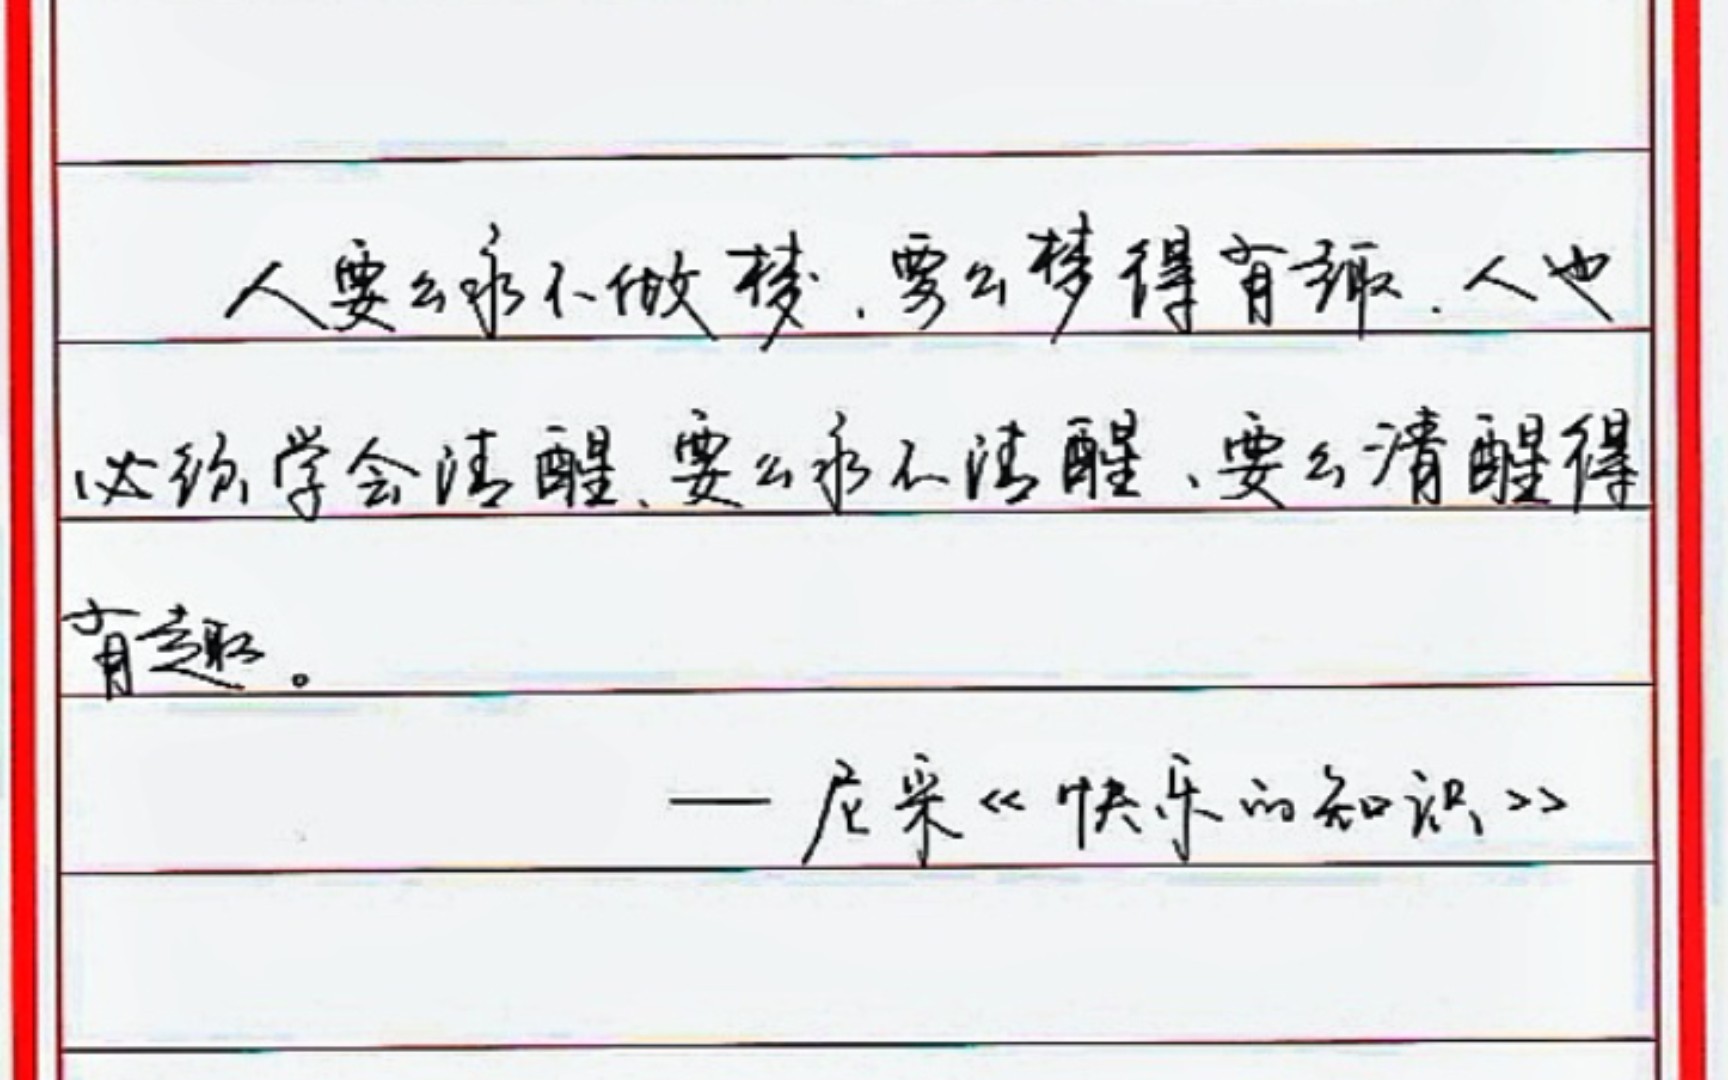 人要么永不做梦、要么梦得有趣、人也
必须学会清醒、要么永不清醒、要么清醒得
有趣。
——尼采《快乐的知识》